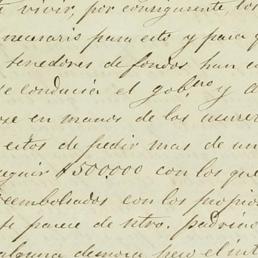 vivir, por consiguiente, los
necesario para esto y para q
tenedores de fondos han c
se conducia el gob.no y a
se en manos de los usurer
estos de pedir mas de un
eguir $500.000 con los que
eembolsados con los propios
te parece de otro. padrino
alguna demora pero el int